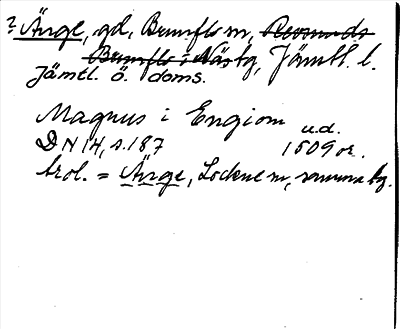 ? Änge, gd, Brunflo sn, Revsunds
Brunflo o Näs tg, Jämtl. l.
Jämtl. ö. doms.
Magnus i Engiom u.d.
DN 14, s. 187 1509 or.
trol. = Änge, Lockne sn, samma tg.